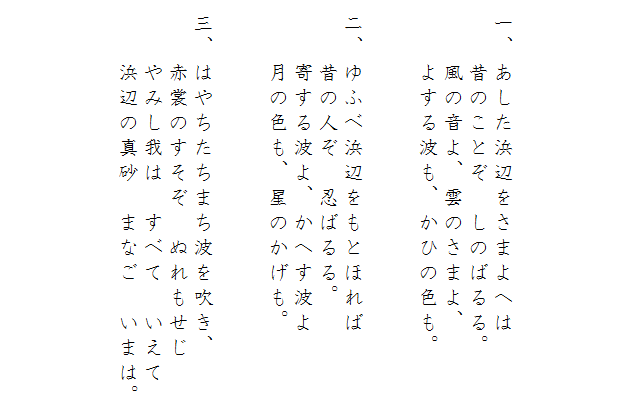 一、あした浜辺をさまよへは
昔のことぞ　しのばるる。
風の音よ、雲のさまよ、
よする波も、かひの色も。
二、ゆふべ浜辺をもとほれば
昔の人ぞ　忍ばるる。
寄する波よ、かへす波よ
月の色も、星のかげも。
三、はやちたちまち波を吹き、
赤裳のすそぞ　ぬれもせじ
やみし我は　すべて　いえて
浜辺の真砂　まなご　いまは。